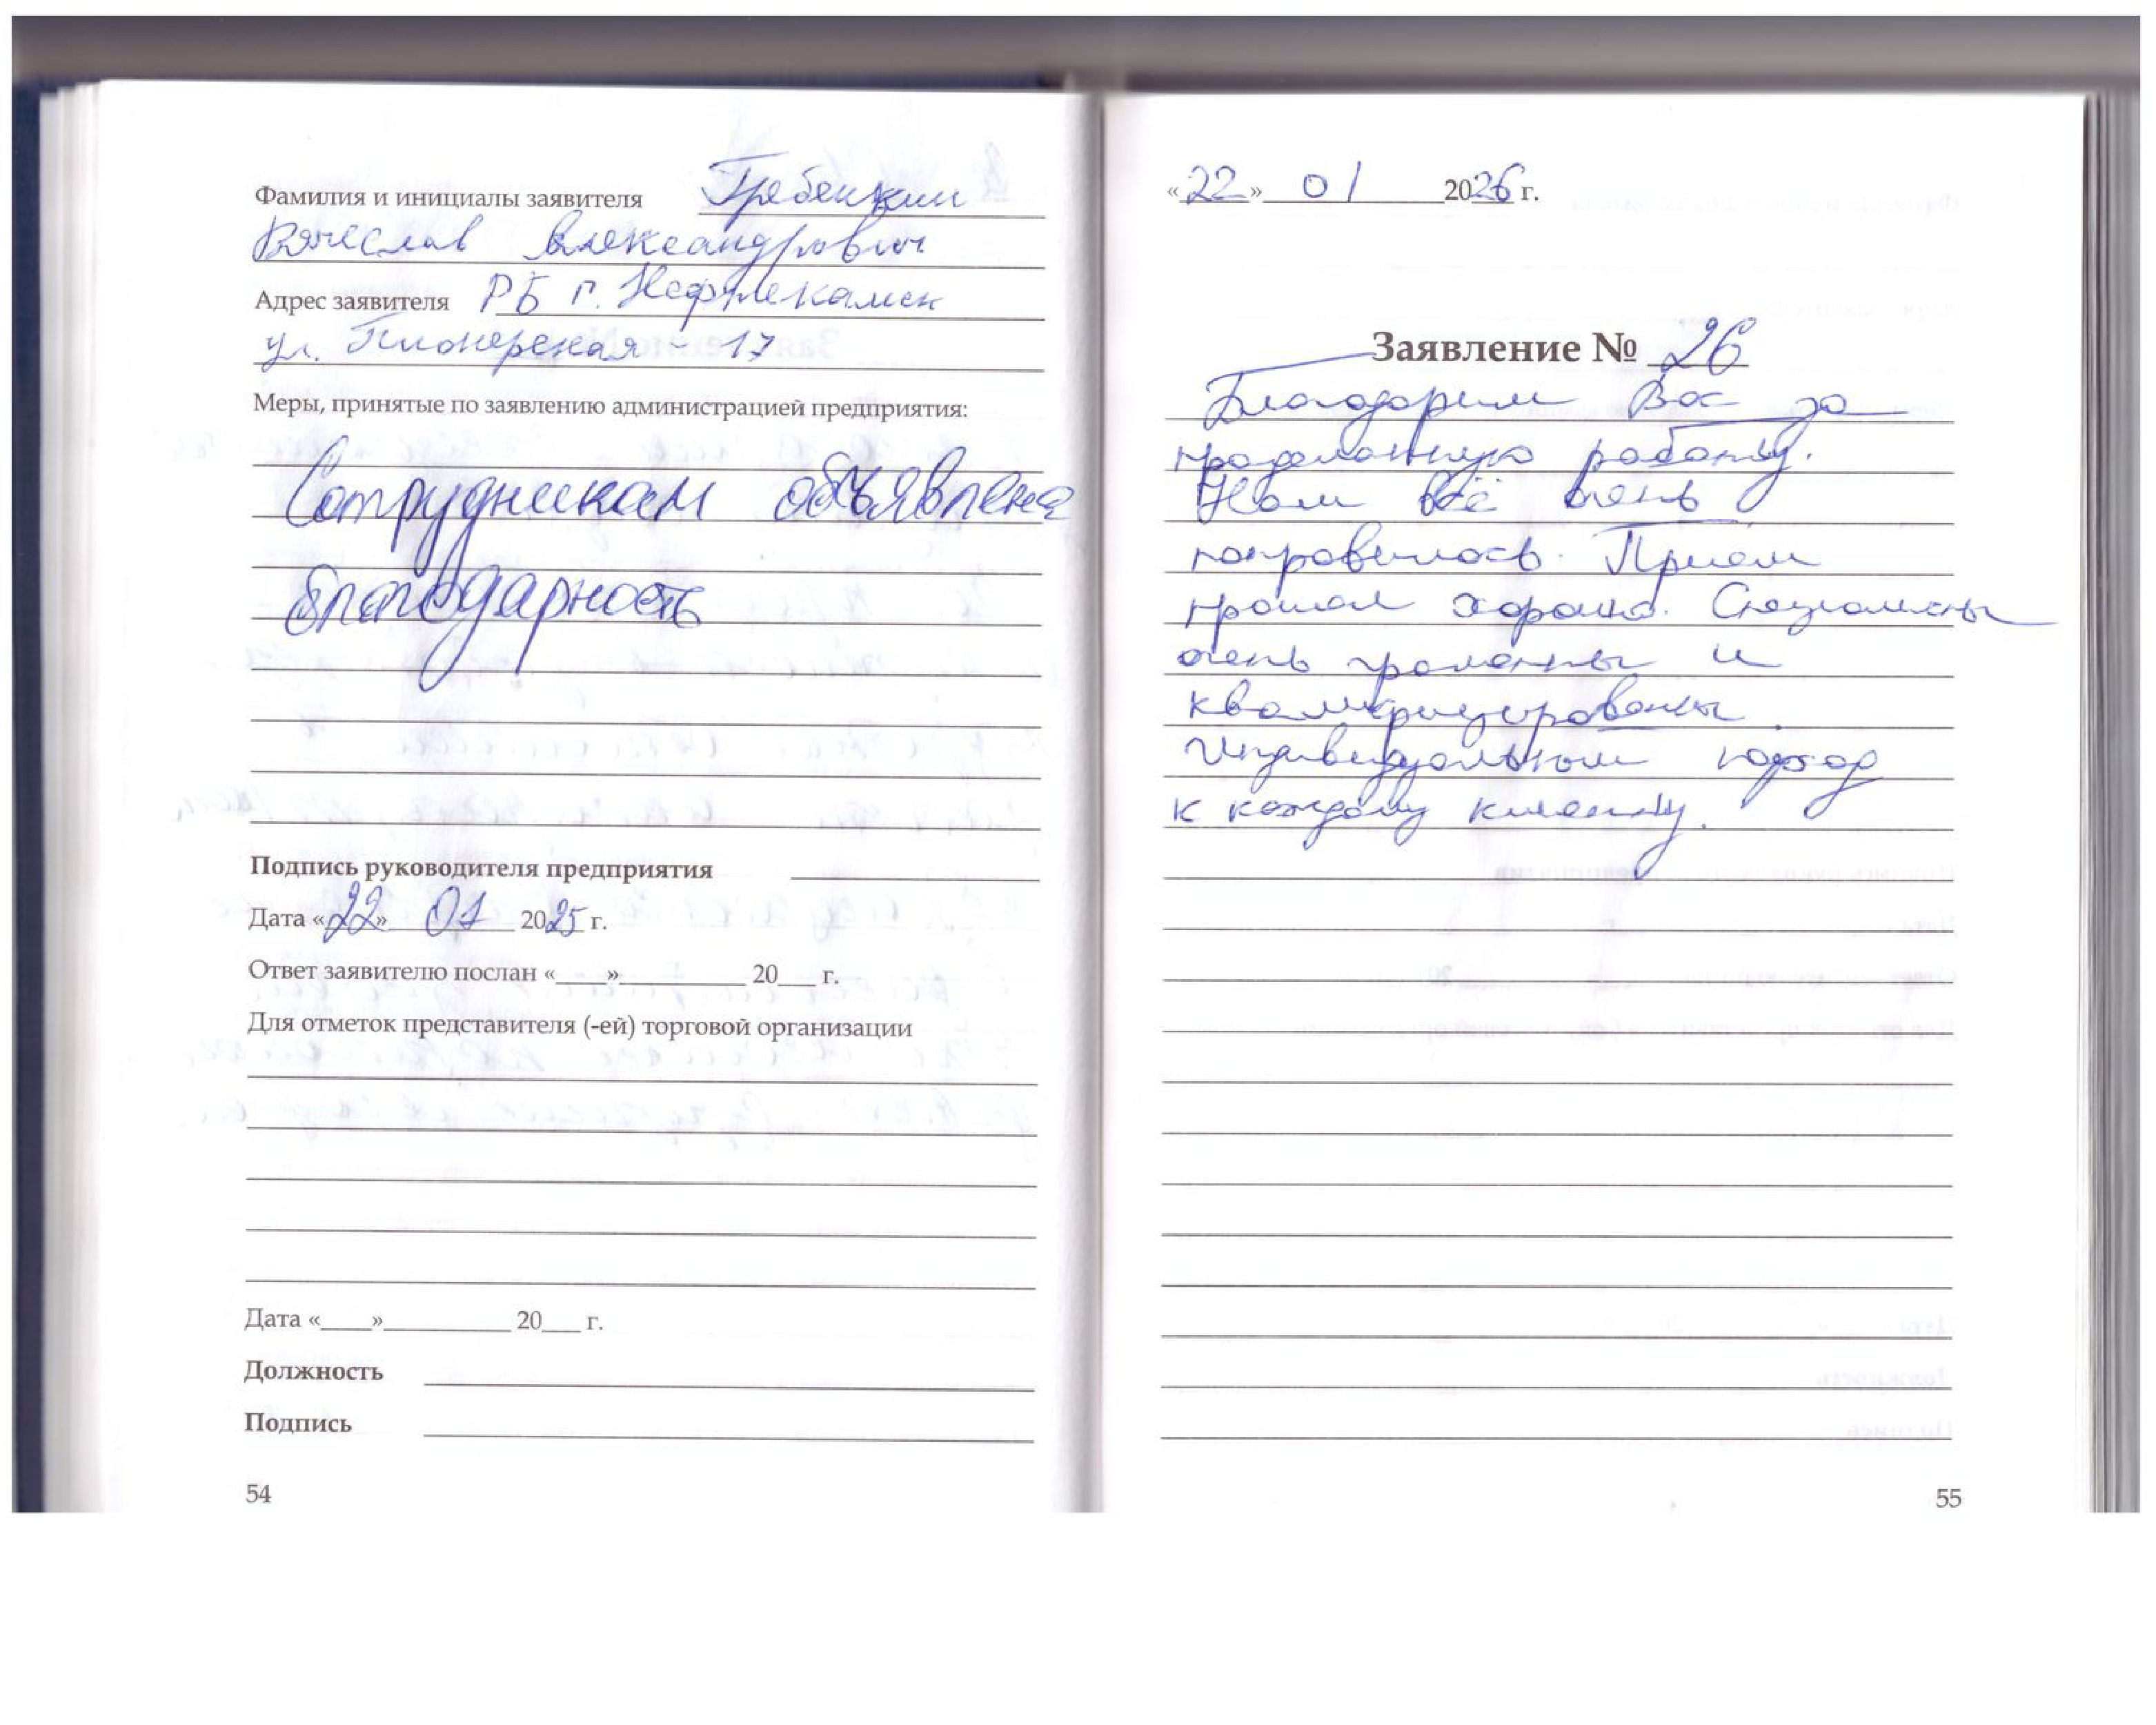 Фамилия и инициалы заявителя Гребенкин
Вячеслав Александрович
Адрес заявителя РБ г. Нефтекамск
ул. Пионерская - 17
Меры, принятые по заявлению администрацией предприятия:
Сотрудникам объявлена
благодарность
Подпись руководителя предприятия
Дата «22» 01 2025 г.
Ответ заявителю послан «____»__________ 20___ г.
Для отметок представителя (-ей) торговой организации
Дата «____»__________ 20___ г.
Должность
Подпись
54
«22» 01 2026 г.
Заявление № 26
Благодарим Вас за
проделанную работу.
Нам всё очень
понравилось. Прием
прошел хорошо. Специалисты
очень грамотны и
квалифицированы.
Индивидуальный подход
к каждому клиенту.
55